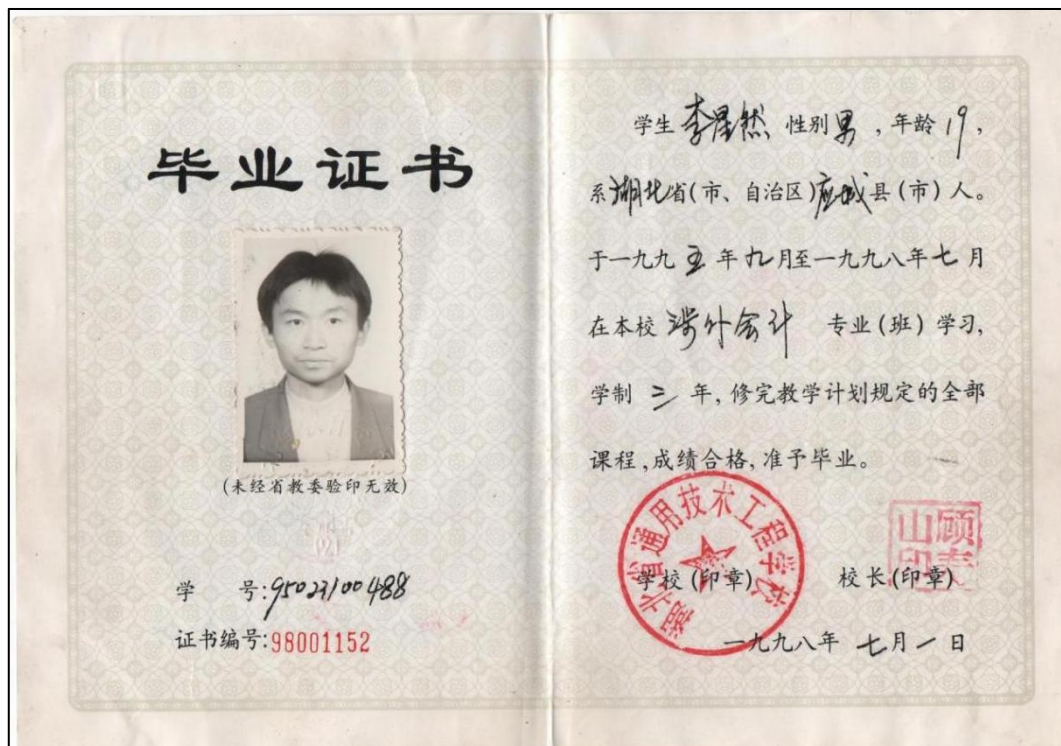 毕业证书
(未经省教委验印无效)
学 号:95023100488
证书编号:98001152
学生 李星然 性别 男 , 年龄 19 ,
系 湖北 省(市、自治区) 应城 县(市)人。
于一九九 五 年 九 月至一九九八年 七 月
在本校 涉外会计 专业(班)学习,
学制 三 年, 修完教学计划规定的全部
课程,成绩合格,准予毕业。
湖北省通用技术工程学校
学校(印章) 校长(印章)
一九九八年 七 月 一 日